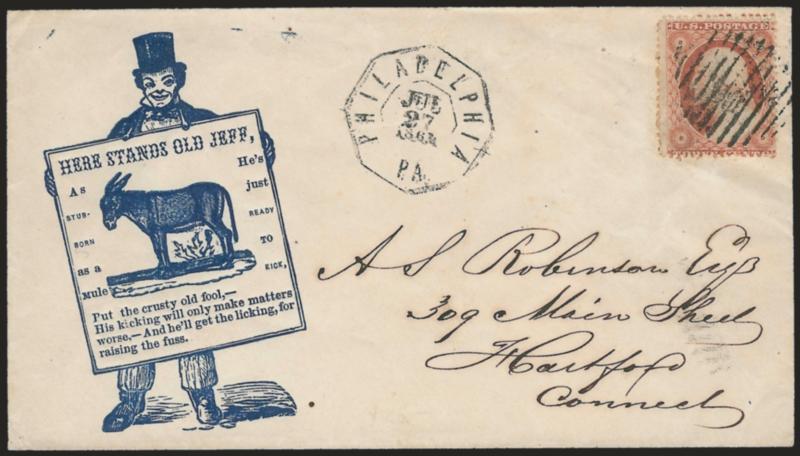 HERE STANDS OLD JEFF,
As He's
STUB- just
BORN READY
as a TO
Mule KICK,
Put the crusty old fool,—
His kicking will only make matters
worse,—And he'll get the licking, for
raising the fuss.
PHILADELPHIA
JUL
27
PA.
U.S. POSTAGE
A S Robinson Esq
309 Main Street
Hartford
Connect